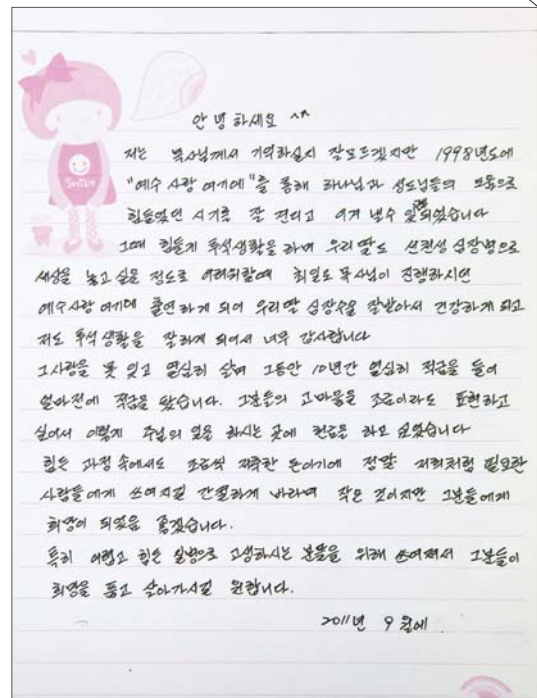 안녕하세요 ^^
저는 목사님께서 기억하실지 잘모르겠지만 1998년도에
"예수 사랑 여기에"를 통해 하나님과 성도님들의 도움으로
힘들었던 시기를 잘 견디고 이겨 낼수 있 되었습니다
그때 힘들게 투석생활을 하며 우리딸도 선천성 심장병으로
세상을 놓고 싶을 정도로 어려워할때 최일도 목사님이 진행하시던
예수사랑 여기에 출연하게 되어 우리딸 심장수술 잘받아서 건강하게 되고
저도 투석 생활을 잘하게 되어서 너무 감사합니다
그사랑을 못 잊고 열심히 살며 그동안 10년간 열심히 적금을 들어
얼마전에 적금을 탔습니다. 그분들의 고마움을 조금이라도 표현하고
싶어서 이렇게 주님의 일을 하시는 곳에 헌금을 하고 싶었습니다
힘든 과정 속에서도 조금씩 저축한 돈이기에 정말 저희처럼 필요한
사람들에게 쓰여지길 간절하게 바라며 작은 것이지만 그분들에게
희망이 되었음 좋겠습니다.
특히 어렵고 힘든 질병으로 고생하시는 분들을 위해 쓰여져서 그분들이
희망을 품고 살아가시길 원합니다.
2011년 9월에
SMILE